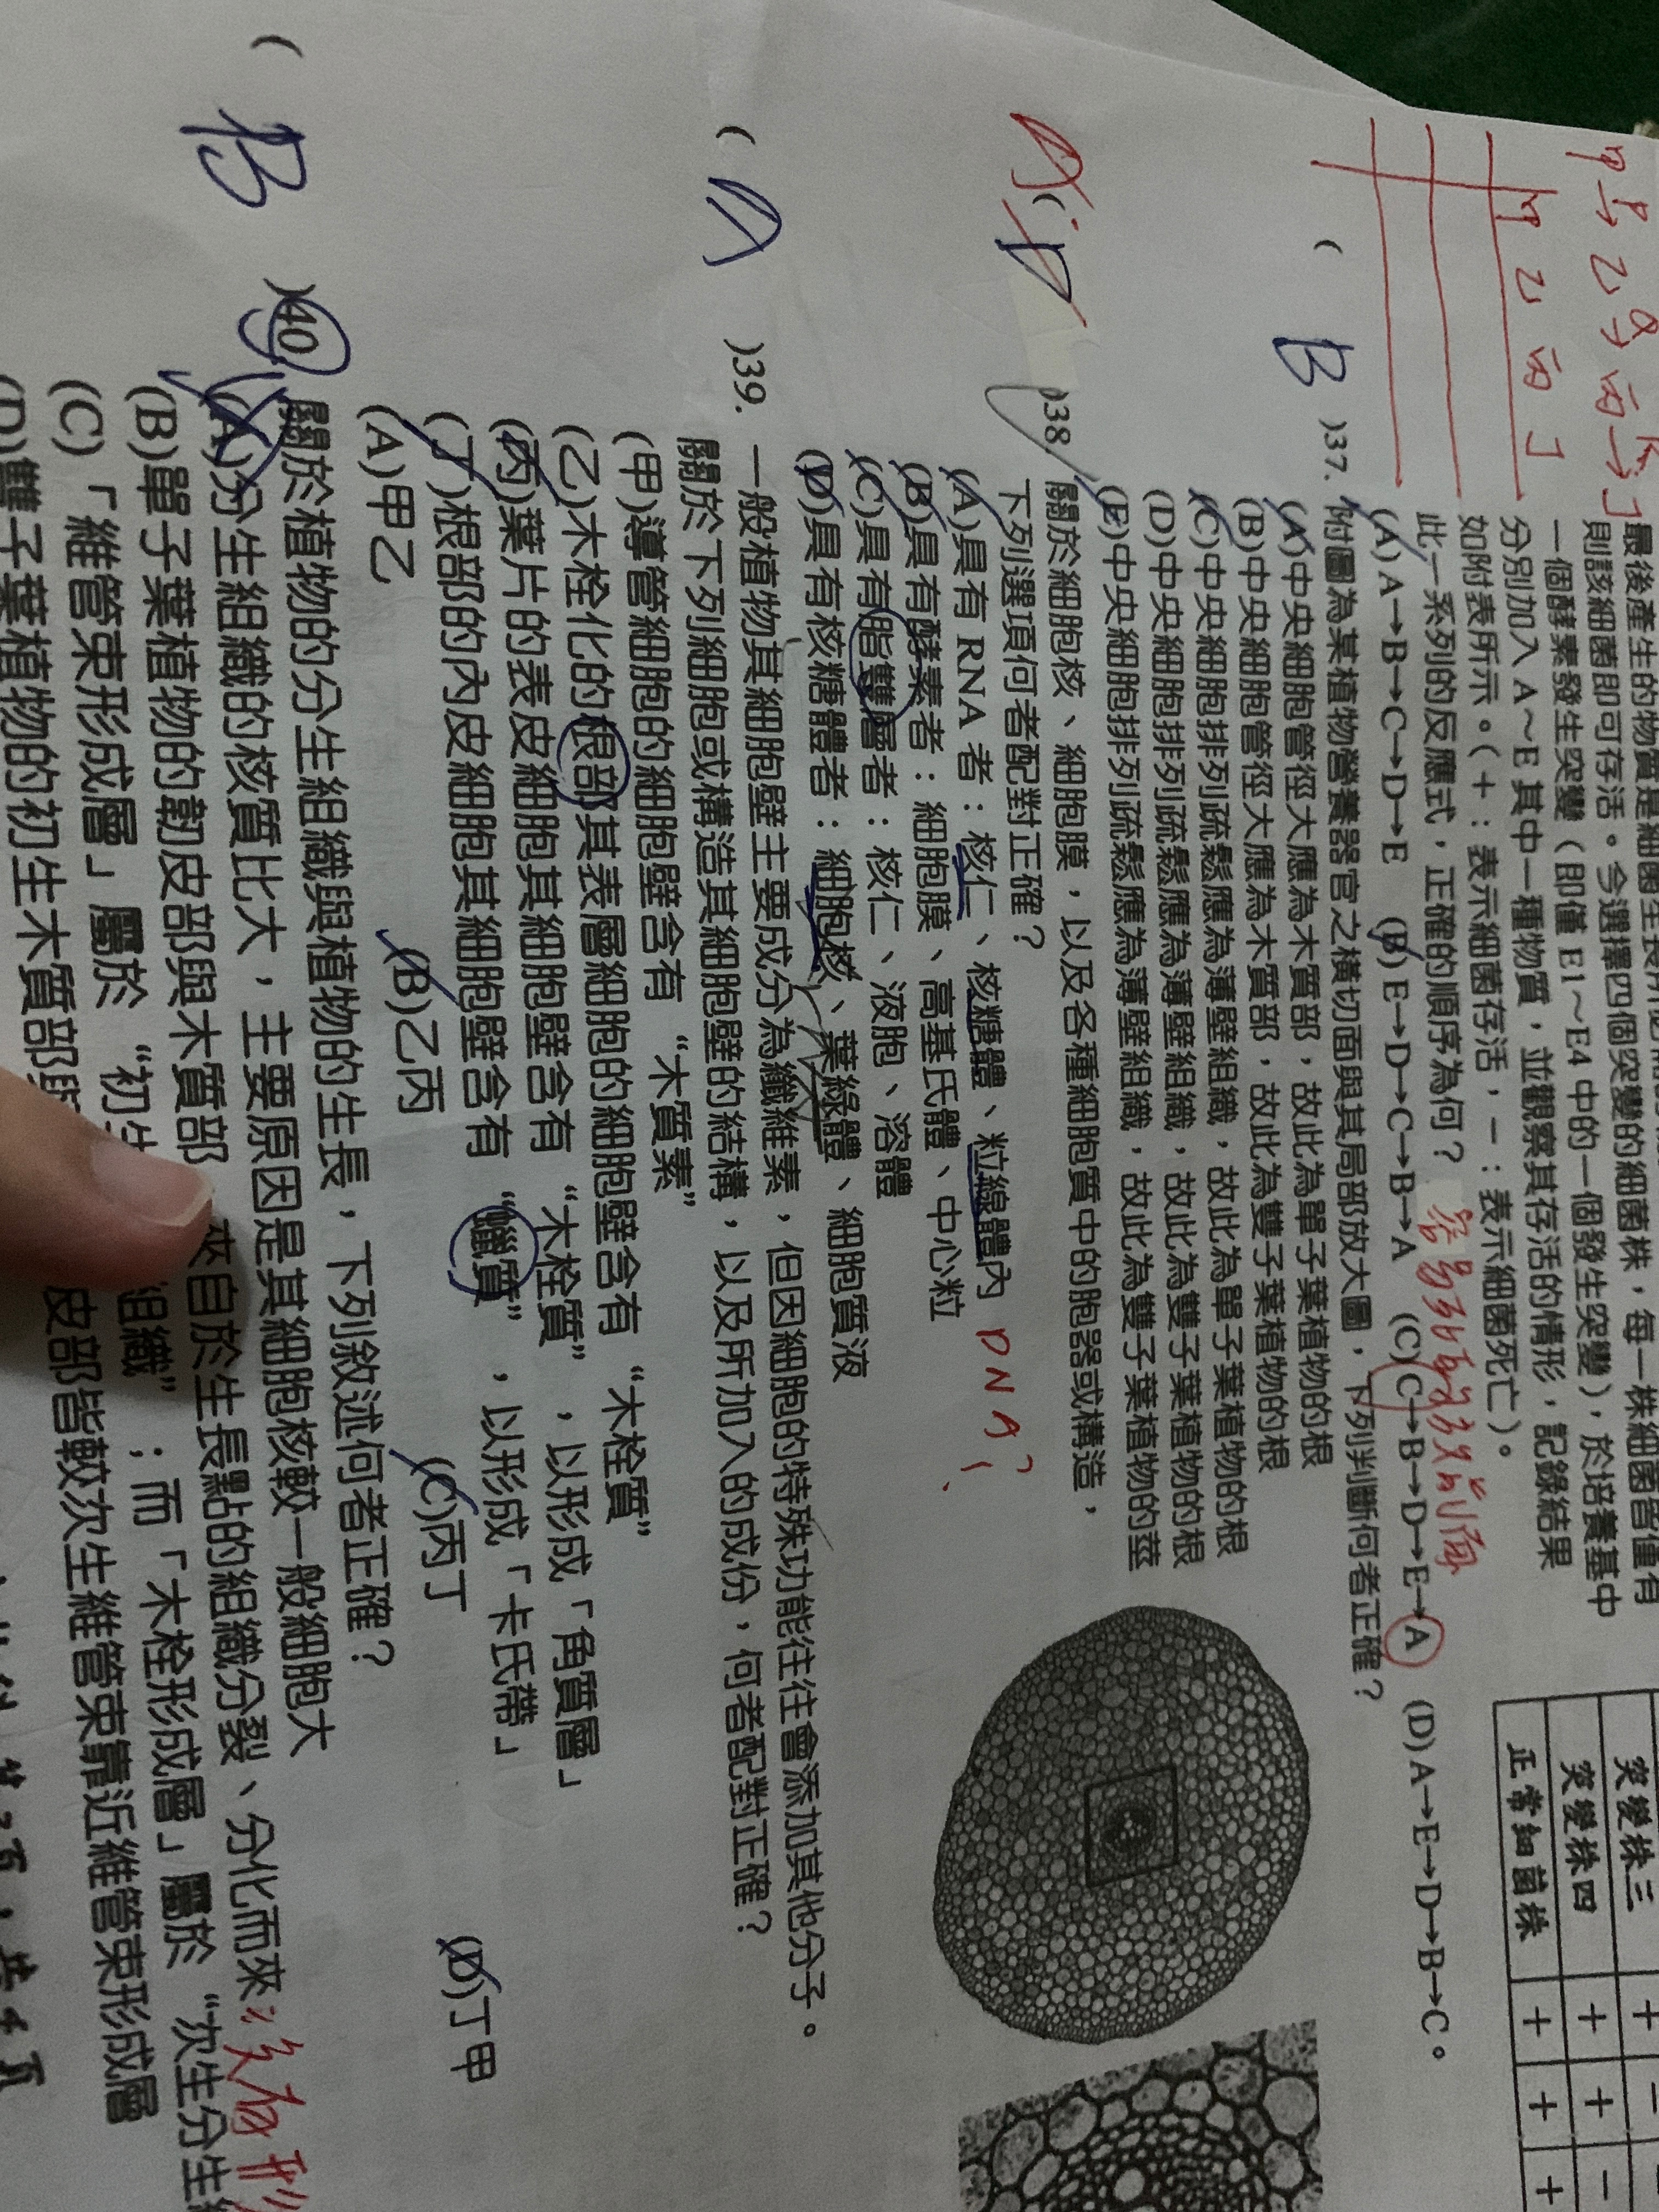 最後產生的物質是細菌生長所必需的
則該細菌即可存活。今選擇四個突變的細菌株，每一株細菌皆僅有
一個酵素發生突變（即僅 E1～E4 中的一個發生突變），於培養基中
分別加入 A～E 其中一種物質，並觀察其存活的情形，記錄結果
如附表所示。（＋：表示細菌存活，－：表示細菌死亡）。
此一系列的反應式，正確的順序為何？
(A) A→B→C→D→E (B) E→D→C→B→A (C) C→B→D→E→A (D) A→E→D→B→C。
突變株三 ＋ －
突變株四 ＋ ＋ －
正常細菌株 ＋ ＋ ＋
甲 乙 丙 丁
甲 乙 丙 丁
( B )37. 附圖為某植物營養器官之橫切面與其局部放大圖，下列判斷何者正確？
(A)中央細胞管徑大應為木質部，故此為單子葉植物的根
(B)中央細胞管徑大應為木質部，故此為雙子葉植物的根
(C)中央細胞排列疏鬆應為薄壁組織，故此為單子葉植物的根
(D)中央細胞排列疏鬆應為薄壁組織，故此為雙子葉植物的根
(E)中央細胞排列疏鬆應為薄壁組織，故此為雙子葉植物的莖
( )38. 關於細胞核、細胞膜，以及各種細胞質中的胞器或構造，
下列選項何者配對正確？
(A)具有 RNA 者：核仁、核糖體、粒線體內 DNA?
(B)具有酵素者：細胞膜、高基氏體、中心粒
(C)具有脂雙層者：核仁、液胞、溶體
(D)具有核糖體者：細胞核、葉綠體、細胞質液
( A )39. 一般植物其細胞壁主要成分為纖維素，但因細胞的特殊功能往往會添加其他分子。
關於下列細胞或構造其細胞壁的結構，以及所加入的成份，何者配對正確？
(甲)導管細胞的細胞壁含有“木質素”
(乙)木栓化的根部其表層細胞的細胞壁含有“木栓質”
(丙)葉片的表皮細胞其細胞壁含有“木栓質”，以形成「角質層」
(丁)根部的內皮細胞其細胞壁含有“蠟質”，以形成「卡氏帶」
(A)甲乙 (B)乙丙 (C)丙丁 (D)丁甲
( B )40. 關於植物的分生組織與植物的生長，下列敘述何者正確？
(A)分生組織的核質比大，主要原因是其細胞核較一般細胞大
(B)單子葉植物的韌皮部與木質部 來自於生長點的組織分裂、分化而來
(C)「維管束形成層」屬於“初生 組織”；而「木栓形成層」屬於“次生分生
(D)雙子葉植物的初生木質部與 皮部皆較次生維管束靠近維管束形成層